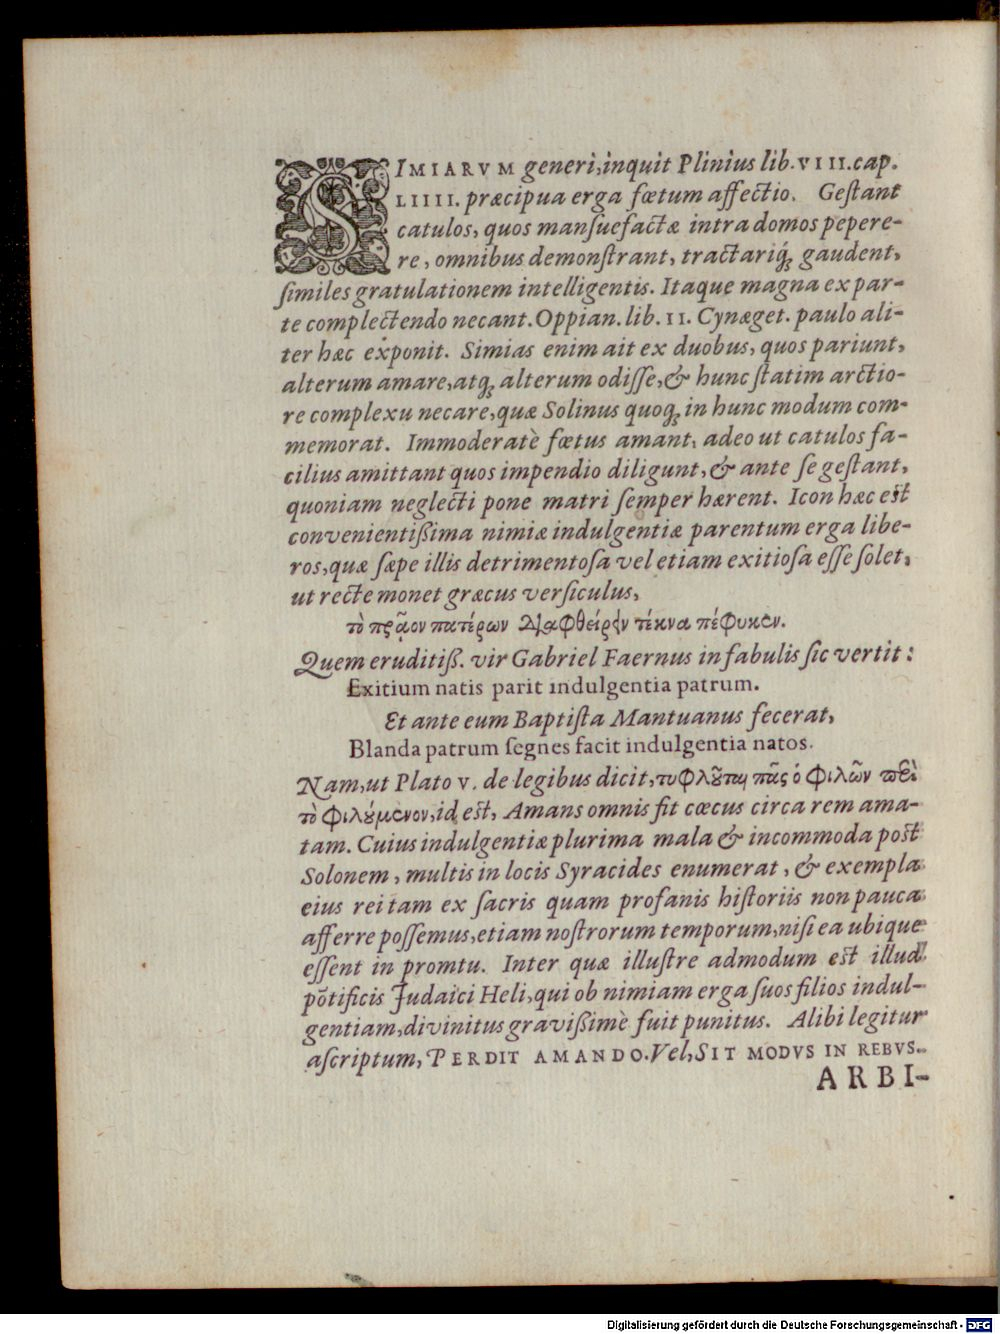 SIMIARVM generi, inquit Plinius lib. VIII. cap.
LIIII. præcipua erga fœtum affectio. Geſtant
catulos, quos manſuefactæ intra domos pepere-
re, omnibus demonſtrant, tractariq́ꝫ gaudent,
ſimiles gratulationem intelligentis. Itaque magna ex par-
te complectendo necant. Oppian. lib. II. Cynæget. paulo ali-
ter hæc exponit. Simias enim ait ex duobus, quos pariunt,
alterum amare, atqꝫ alterum odiſſe, & hunc ſtatim arctio-
re complexu necare, quæ Solinus quoqꝫ in hunc modum com-
memorat. Immoderatè fœtus amant, adeo ut catulos fa-
cilius amittant quos impendio diligunt, & ante ſe geſtant,
quoniam neglecti pone matri ſemper hærent. Icon hæc eſt
convenientißima nimiæ indulgentiæ parentum erga libe-
ros, quæ ſæpe illis detrimentoſa vel etiam exitioſa eſſe ſolet,
ut recte monet græcus verſiculus,
τὸ πρᾶον πατέρων διαφθείρειν τέκνα πέφυκεν.
Quem eruditiß. vir Gabriel Faernus in fabulis ſic vertit:
Exitium natis parit indulgentia patrum.
Et ante eum Baptiſta Mantuanus fecerat,
Blanda patrum ſegnes facit indulgentia natos.
Nam, ut Plato V. de legibus dicit, τυφλοῦται πᾶς ὁ φιλῶν περὶ
τὸ φιλούμενον, id eſt, Amans omnis fit cœcus circa rem ama-
tam. Cuius indulgentiæ plurima mala & incommoda poſt
Solonem, multis in locis Syracides enumerat, & exempla
eius rei tam ex ſacris quam profanis hiſtoriis non pauca
afferre poſſemus, etiam noſtrorum temporum, niſi ea ubique
eſſent in promtu. Inter quæ illuſtre admodum eſt illud
põtificis Judaici Heli, qui ob nimiam erga ſuos filios indul-
gentiam, divinitus gravißimè fuit punitus. Alibi legitur
aſcriptum, PERDIT AMANDO. Vel, SIT MODVS IN REBVS.
ARBI-
Digitalisierung gefördert durch die Deutsche Forschungsgemeinschaft - DFG